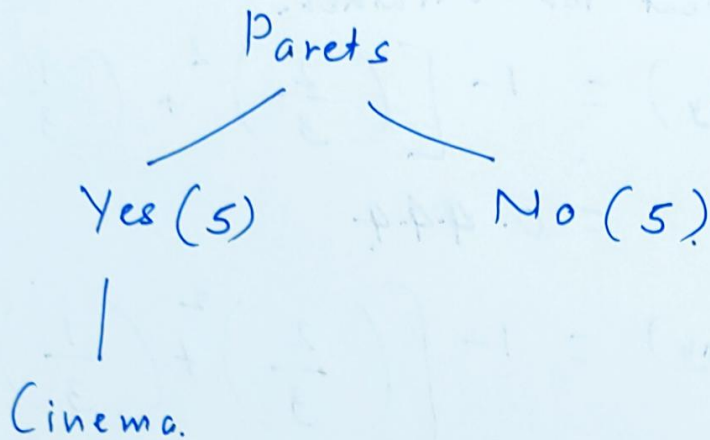 Parets
Yes (5) No (5)
Cinema.